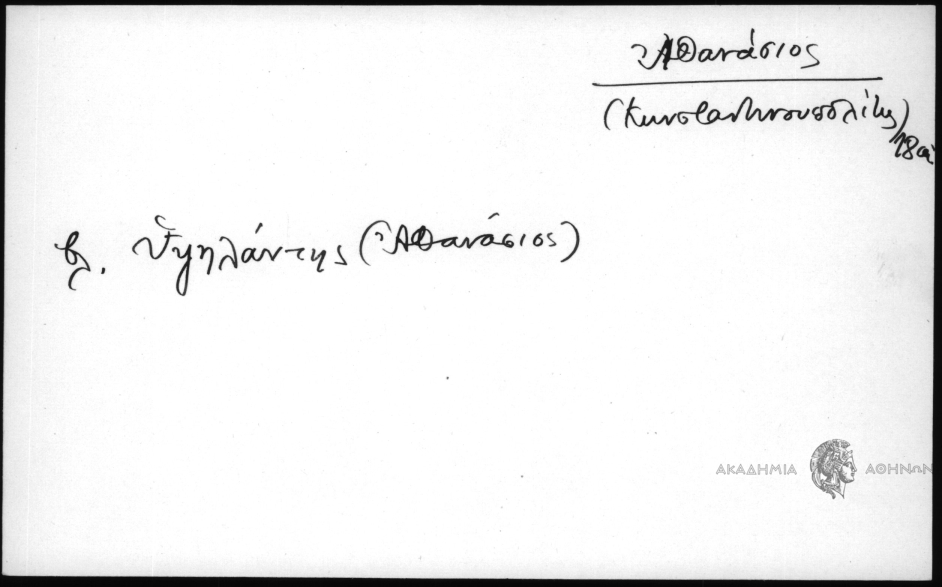 Ἀθανάσιος
(Κωνσταντινουπολίτης)
18 αἰ
βλ. Ὑψηλάντης (Ἀθανάσιος)
ΑΚΑΔΗΜΙΑ ΑΘΗΝΩΝ